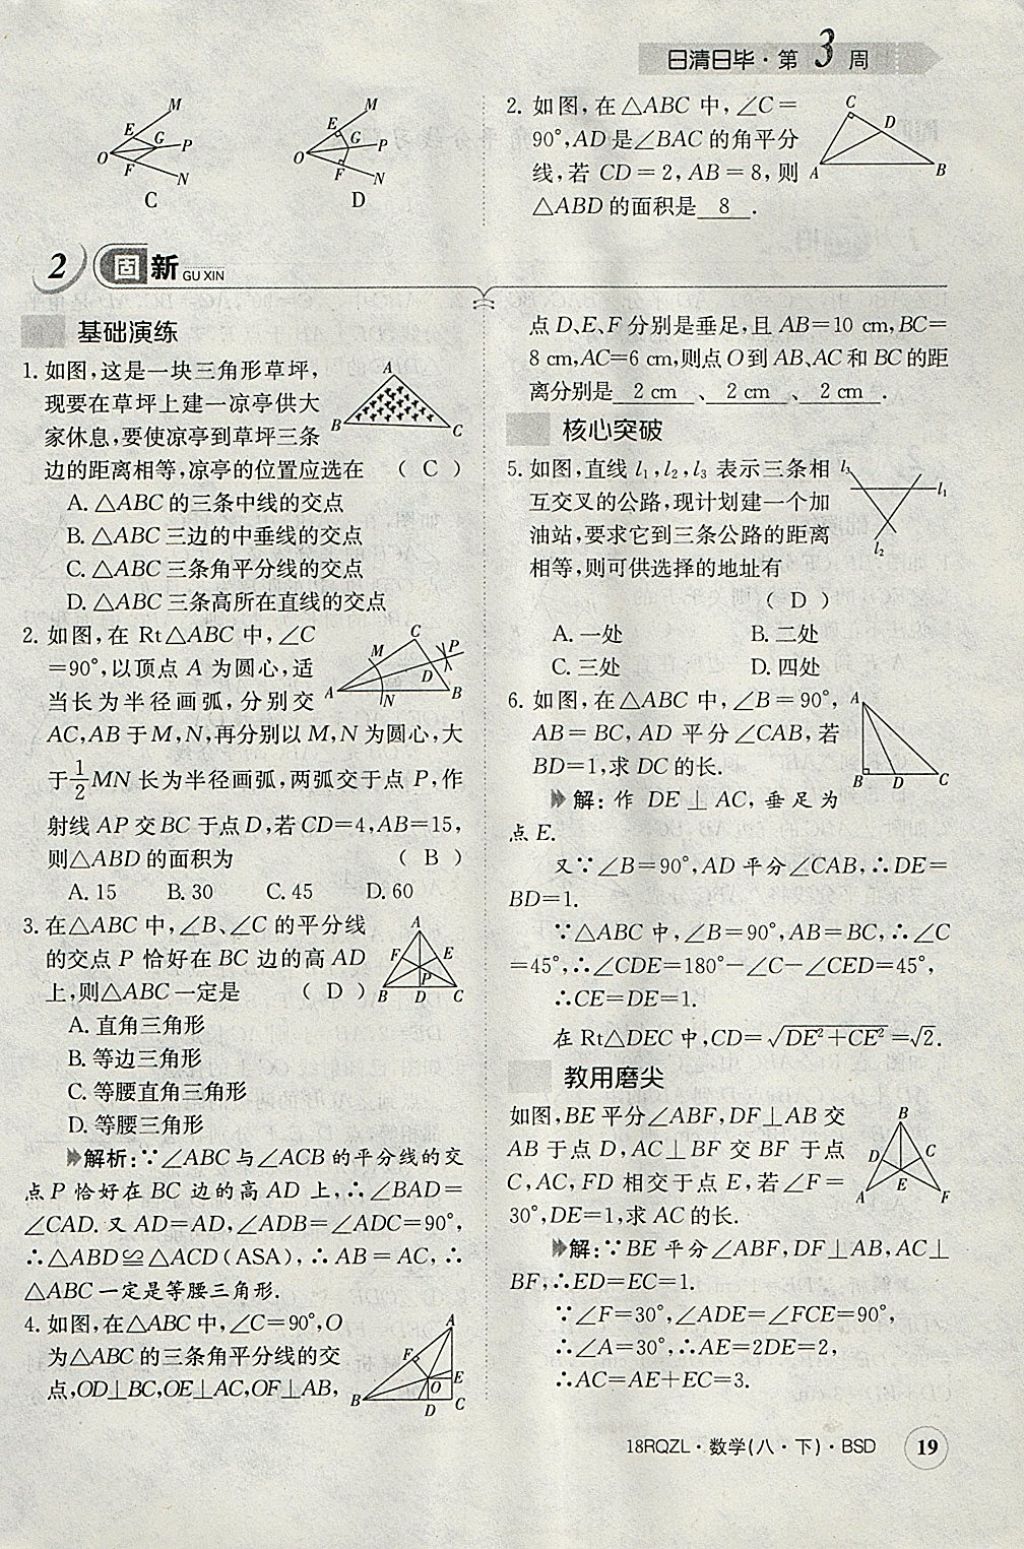 日清日毕·第3周
M
E
G
P
O
F
N
C
M
E
G
P
O
F
N
D
2. 如图,在△ABC 中,∠C=
90°,AD是∠BAC的角平分
线,若 CD=2,AB=8,则
△ABD的面积是 8 .
C
D
A
B
2 固新 GU XIN
基础演练
1. 如图,这是一块三角形草坪,
现要在草坪上建一凉亭供大
家休息,要使凉亭到草坪三条
边的距离相等,凉亭的位置应选在 ( C )
A
B
C
A. △ABC的三条中线的交点
B. △ABC三边的中垂线的交点
C. △ABC三条角平分线的交点
D. △ABC三条高所在直线的交点
2. 如图,在 Rt△ABC 中,∠C
=90°,以顶点 A 为圆心,适
当长为半径画弧,分别交
AC,AB于M,N,再分别以M,N为圆心,大
于1/2MN长为半径画弧,两弧交于点 P,作
射线AP交BC于点D,若CD=4,AB=15,
则△ABD的面积为 ( B )
C
M
P
D
A
N
B
A. 15 B. 30 C. 45 D. 60
3. 在△ABC中,∠B、∠C的平分线
的交点 P 恰好在 BC 边的高 AD
上,则△ABC一定是 ( D )
A
F
E
P
B
D
C
A. 直角三角形
B. 等边三角形
C. 等腰直角三角形
D. 等腰三角形
解析:∵∠ABC与∠ACB的平分线的交
点P恰好在BC边的高AD上,∴∠BAD=
∠CAD.又AD=AD,∠ADB=∠ADC=90°,
∴△ABD≌△ACD(ASA),∴AB=AC,∴
△ABC一定是等腰三角形.
4. 如图,在△ABC中,∠C=90°,O
为△ABC的三条角平分线的交
点,OD⊥BC,OE⊥AC,OF⊥AB,
A
F
E
O
B
D
C
点D、E、F分别是垂足,且 AB=10 cm,BC=
8 cm,AC=6 cm,则点O到AB、AC和BC的距
离分别是 2 cm 、 2 cm 、 2 cm .
核心突破
5. 如图,直线 l₁,l₂,l₃ 表示三条相
互交叉的公路,现计划建一个加
油站,要求它到三条公路的距离
相等,则可供选择的地址有
( D )
l₃
l₁
l₂
A. 一处 B. 二处
C. 三处 D. 四处
6. 如图,在△ABC 中,∠B=90°,
AB=BC,AD 平分∠CAB,若
BD=1,求DC的长.
A
B
D
C
解:作 DE⊥AC,垂足为
点E.
又∵∠B=90°,AD平分∠CAB,∴DE=
BD=1.
∵△ABC中,∠B=90°,AB=BC,∴∠C
=45°,∴∠CDE=180°-∠C-∠CED=45°,
∴CE=DE=1.
在Rt△DEC中,CD=√(DE²+CE²)=√2.
教用磨尖
如图,BE平分∠ABF,DF⊥AB交
AB于点D,AC⊥BF交BF于点
C,AC,FD相交于点E,若∠F=
30°,DE=1,求AC的长.
B
D
C
E
A
F
解:∵BE平分∠ABF,DF⊥AB,AC⊥
BF,∴ED=EC=1.
∵∠F=30°,∠ADE=∠FCE=90°,
∴∠A=30°,∴AE=2DE=2,
∴AC=AE+EC=3.
18RQZL·数学(八·下)·BSD 19